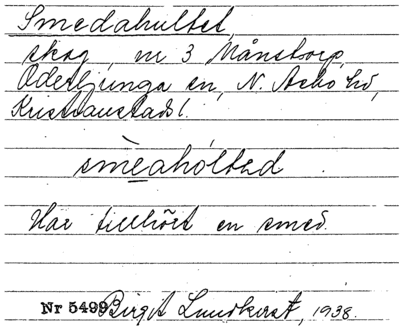 Smedahultet,
skog, nr 3 Månstorp,
Oderljunga sn, N. Åsbo hd,
Kristianstads l.
smèahòlted
Har tillhört en smed.
Nr 5499 Birgit Lundkvist, 1938.